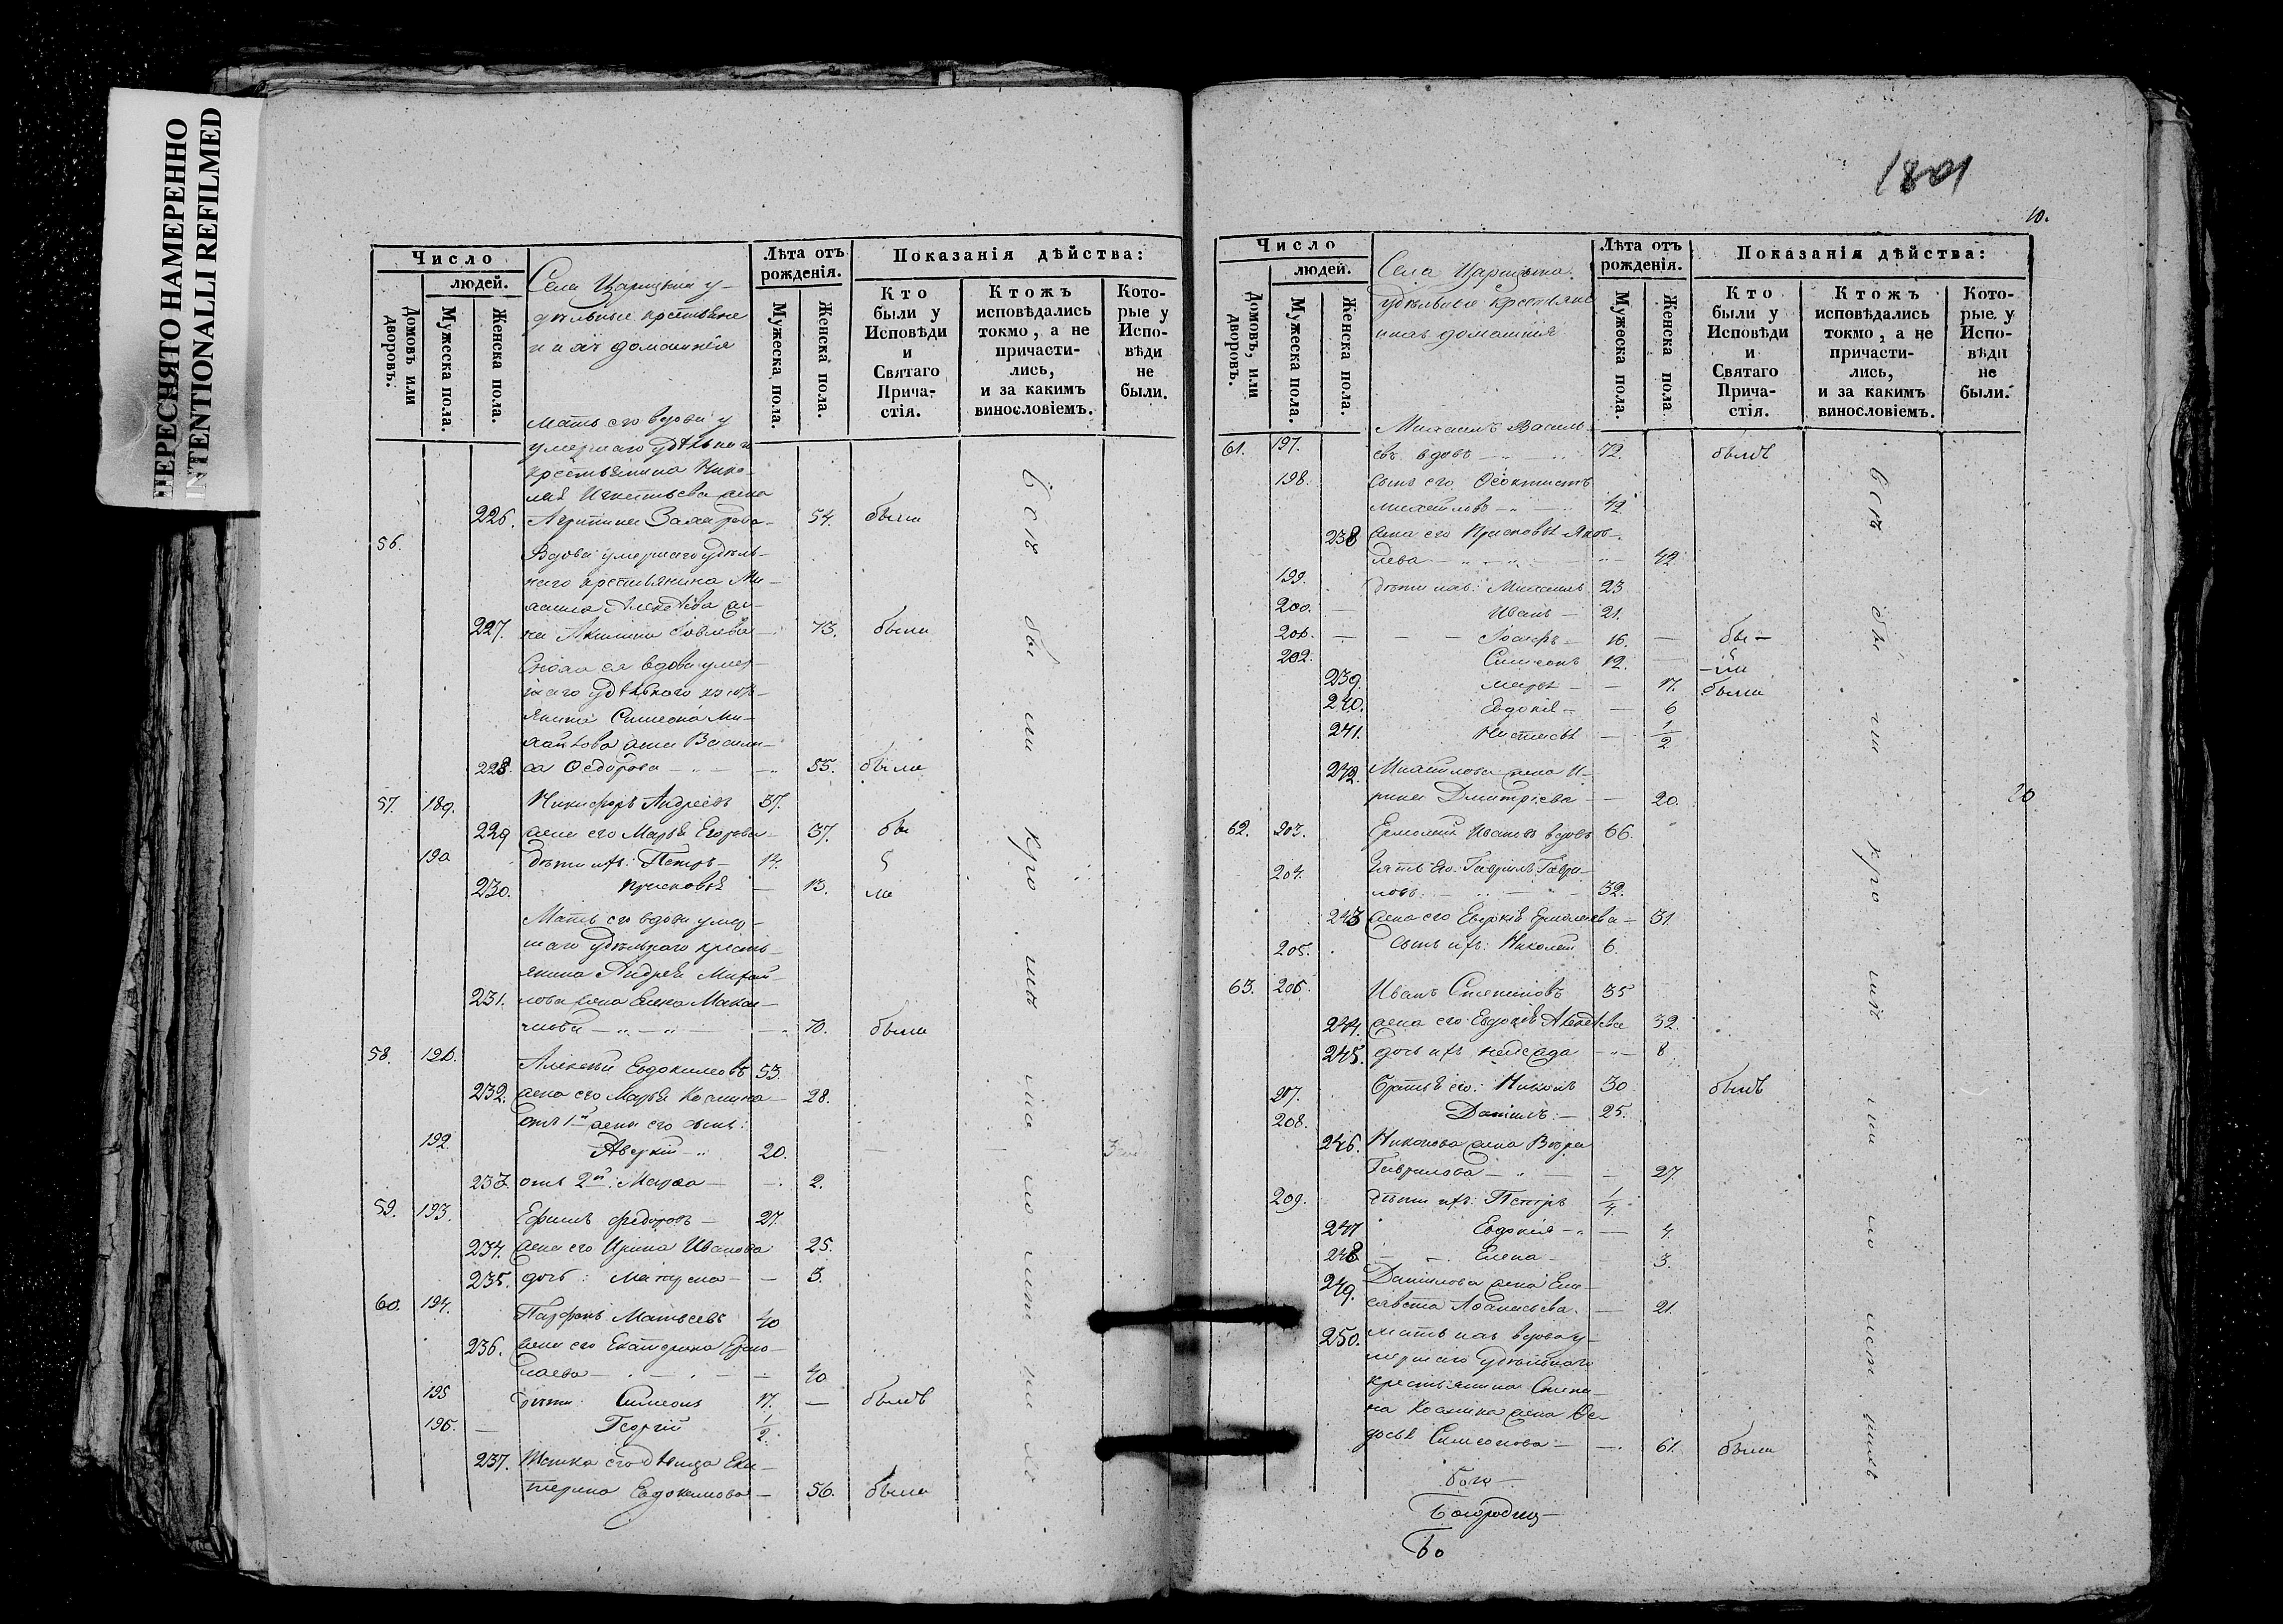 ПЕРЕСНЯТО НАМЕРЕННО
INTENTIONALLI REFILMED
Число
людей.
Домовъ или дворовъ.
Мужеска пола.
Женска пола.
Села Царицына у-
дѣльные крестьяне
и ихъ домашнія
Лѣта отъ рожденія.
Мужеска пола.
Женска пола.
Показанія дѣйства:
Кто были у Исповѣди и Святаго Прича-стія.
Ктожъ исповѣдались токмо, а не причасти-лись, и за какимъ винословіемъ.
Кото-рые у Испо-вѣди не были.
Мать его вдова у
умершаго удѣльнаго
крестьянина Нико-
лая Игнатьева жена
226. Агрипина Захарова - 54. была
56. Вдова умершаго удѣль-
наго крестьянина Ми-
хаила Алексѣева же-
227. на Акилина Іовлева - 73. была
Сноха ея вдова умер-
шаго удѣльнаго крест-
янина Симеона Ми-
хайлова жена Васили-
228. са Ѳедорова - 55. была
57. 189. Никифоръ Андреевъ 37.
229 жена его Марья Егорова - 37. бы
190 дѣти ихъ: Петръ - 14.
230. Прасковья - 13. ли
Мать его вдова умер-
шаго удѣльнаго кресть-
янина Андрея Михай-
231. лова жена Елена Макси-
мова - 70. была
58. 191. Алексѣй Евдокимовъ 53.
232. жена его Марья Козмина - 28.
отъ 1й жены его сынъ:
192 Аверкій - 20.
233. отъ 2й: Марѳа - 2.
59. 193. Ефимъ Федоровъ - 27.
234. жена его Ирина Иванова 25.
235. дочь: Матрена - 3.
60. 194. Парфенъ Матвѣевъ 40
236. жена его Екатерина Ермо-
лаева - 40
195 дѣти: Симеонъ 17. - былъ
196. - Георгій 1/2.
237. Тетка его дѣвица Ека-
терина Евдокимова - 56. была
всѣ бы ли кро мѣ ма ло лѣт ни хъ
1801
10.
Число
людей.
Домовъ, или дворовъ.
Мужеска пола.
Женска пола.
Села Царицына
удѣльные крестьяне
и ихъ домашнія
Лѣта отъ рожденія.
Мужеска пола.
Женска пола
Показанія дѣйства:
Кто были у Исповѣди и Святаго Прича-стія.
Ктожъ исповѣдались токмо, а не причасти-лись, и за какимъ винословіемъ.
Кото-рые у Испо-вѣди не были.
Михаилъ Василь-
61. 197. евъ вдовъ - 72. былъ
198. Сынъ его Ѳеоктистъ
Михайловъ - 42
238 жена его Прасковья Яков-
лева - 42
199. дѣти ихъ: Михаилъ 23
200. - Иванъ - 21.
201. - - - 16. - бы -
202. Симеонъ 12. - - ли
239. Марья - - 17. была
240. Евдокія - - 6
241. Настасья - 1/2
242. Михайлова жена И-
рина Димитріева - 20.
20
62. 203. Ермолай Ивановъ вдовъ 66.
204. Зять его: Гаврилъ Гаври-
ловъ - 32.
243 жена его Евдокія Ермолаева - 31
205. Сынъ ихъ: Николай 6.
63. 206. Иванъ Степановъ 35
244. жена его Евдокія Алексѣева 32.
245. дочь ихъ - 8
207. Братья его: Никонъ 30. былъ
208. Даніилъ: - 25.
246. Никонова жена Вѣра
Гаврилова - 27.
209. дѣти ихъ: Петръ 1/4
247 Евдокія - 4.
248 - - Елена - 3.
249. Даніилова жена Ели-
савета Аѳанасьева. - 21.
250. мать ихъ вдова у-
мершаго удѣльнаго
крестьянина Степа-
на Козмина жена Ѳе-
досья Симеонова - 61. была
всѣ бы ли кро мѣ ма ло лѣт нихъ
Бого-
Богородиц-
Бо